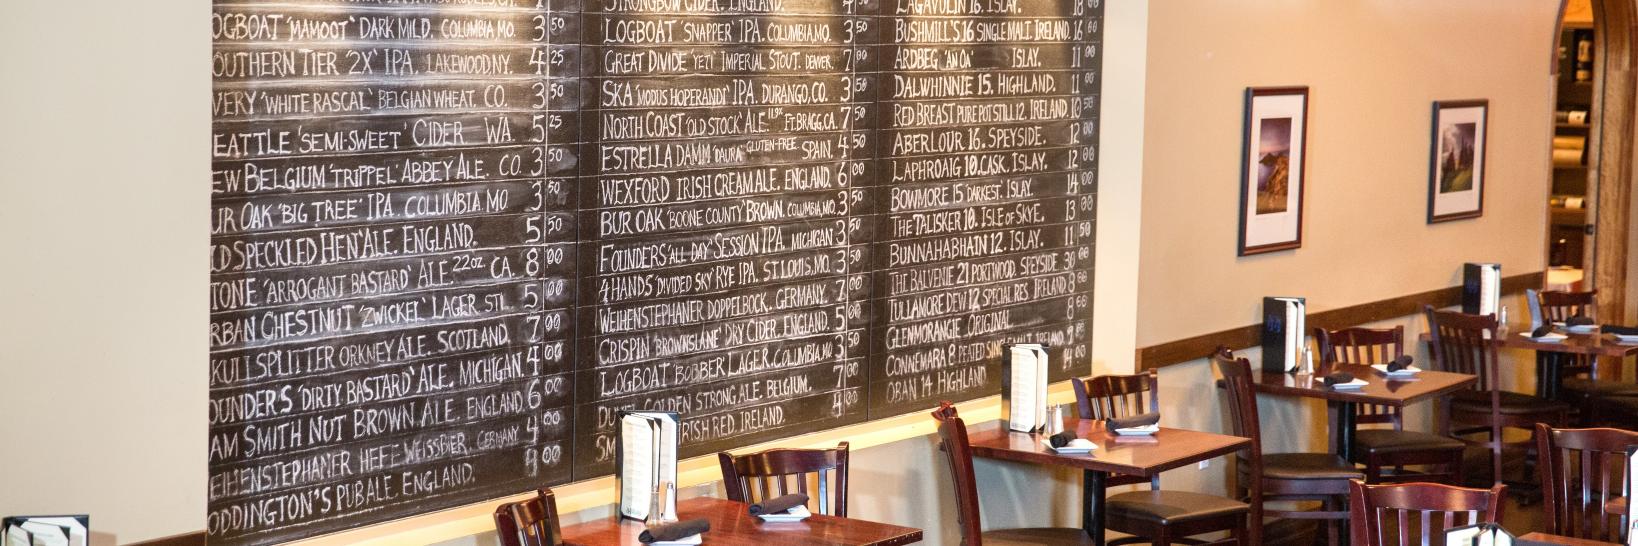 OGBOAT 'MAMOOT' DARK MILD. COLUMBIA MO. 3 50
OUTHERN TIER '2X' IPA. LAKEWOOD NY. 4 25
VERY 'WHITE RASCAL' BELGIAN WHEAT. CO. 3 50
EATTLE 'SEMI-SWEET' CIDER WA. 5 25
EW BELGIUM 'TRIPPEL' ABBEY ALE. CO. 3 50
UR OAK 'BIG TREE' IPA. COLUMBIA. MO 3 50
LD SPECKLED HEN' ALE. ENGLAND. 5 50
TONE 'ARROGANT BASTARD' ALE 22oz CA. 8 00
RBAN CHESTNUT 'ZWICKEL' LAGER. STL 5 00
KULL SPLITTER ORKNEY ALE. SCOTLAND. 7 00
OUNDER'S 'DIRTY BASTARD' ALE. MICHIGAN. 4 00
AM SMITH NUT BROWN ALE. ENGLAND. 6 00
EIHENSTEPHANER HEFE-WEISSBIER. GERMANY 4 00
ODDINGTON'S PUB ALE. ENGLAND. 00
STRONGBOW CIDER. ENGLAND. 4
LOGBOAT 'SNAPPER' IPA. COLUMBIA, MO. 3 50
GREAT DIVIDE 'YETI' IMPERIAL STOUT. DENVER. 7 00
SKA 'MODUS HOPERANDI' IPA. DURANGO, CO. 3 50
NORTH COAST 'OLD STOCK' ALE. 11.9% FT. BRAGG, CA. 7 50
ESTRELLA DAMM 'DAURA' GLUTEN-FREE. SPAIN. 4 50
WEXFORD IRISH CREAM ALE. ENGLAND. 6 00
BUR OAK 'BOONE COUNTY' BROWN. COLUMBIA, MO. 3 50
FOUNDERS 'ALL DAY' SESSION IPA. MICHIGAN 3 50
4 HANDS 'DIVIDED SKY' RYE IPA. ST LOUIS, MO. 3 50
WEIHENSTEPHANER DOPPELBOCK. GERMANY. 7 00
CRISPIN 'BROWNSLANE' DRY CIDER. ENGLAND. 5 00
LOGBOAT 'BOBBER' LAGER. COLUMBIA, MO 3 50
GOLDEN STRONG ALE. BELGIUM. 7 00
IRISH RED. IRELAND. 4
LAGAVULIN 16. ISLAY. 18 00
BUSHMILL'S 16 SINGLE MALT. IRELAND. 16 00
ARDBEG 'AN OA' ISLAY. 11 00
DALWHINNIE 15. HIGHLAND. 11 00
RED BREAST PURE POT STILL 12. IRELAND. 10 50
ABERLOUR 16. SPEYSIDE. 12 00
LAPHROAIG 10. CASK. ISLAY. 12 00
BOWMORE 15 'DARKEST'. ISLAY. 14 00
THE TALISKER 10. ISLE OF SKYE. 13 00
BUNNAHABHAIN 12. ISLAY. 11 50
THE BALVENIE 21 PORTWOOD. SPEYSIDE 30 00
TULLAMORE DEW 12 SPECIAL RES. IRELAND 8 00
GLENMORANGIE ORIGINAL 8
CONNEMARA 8 PEATED SINGLE MALT. IRELAND.
OBAN 14 HIGHLAND